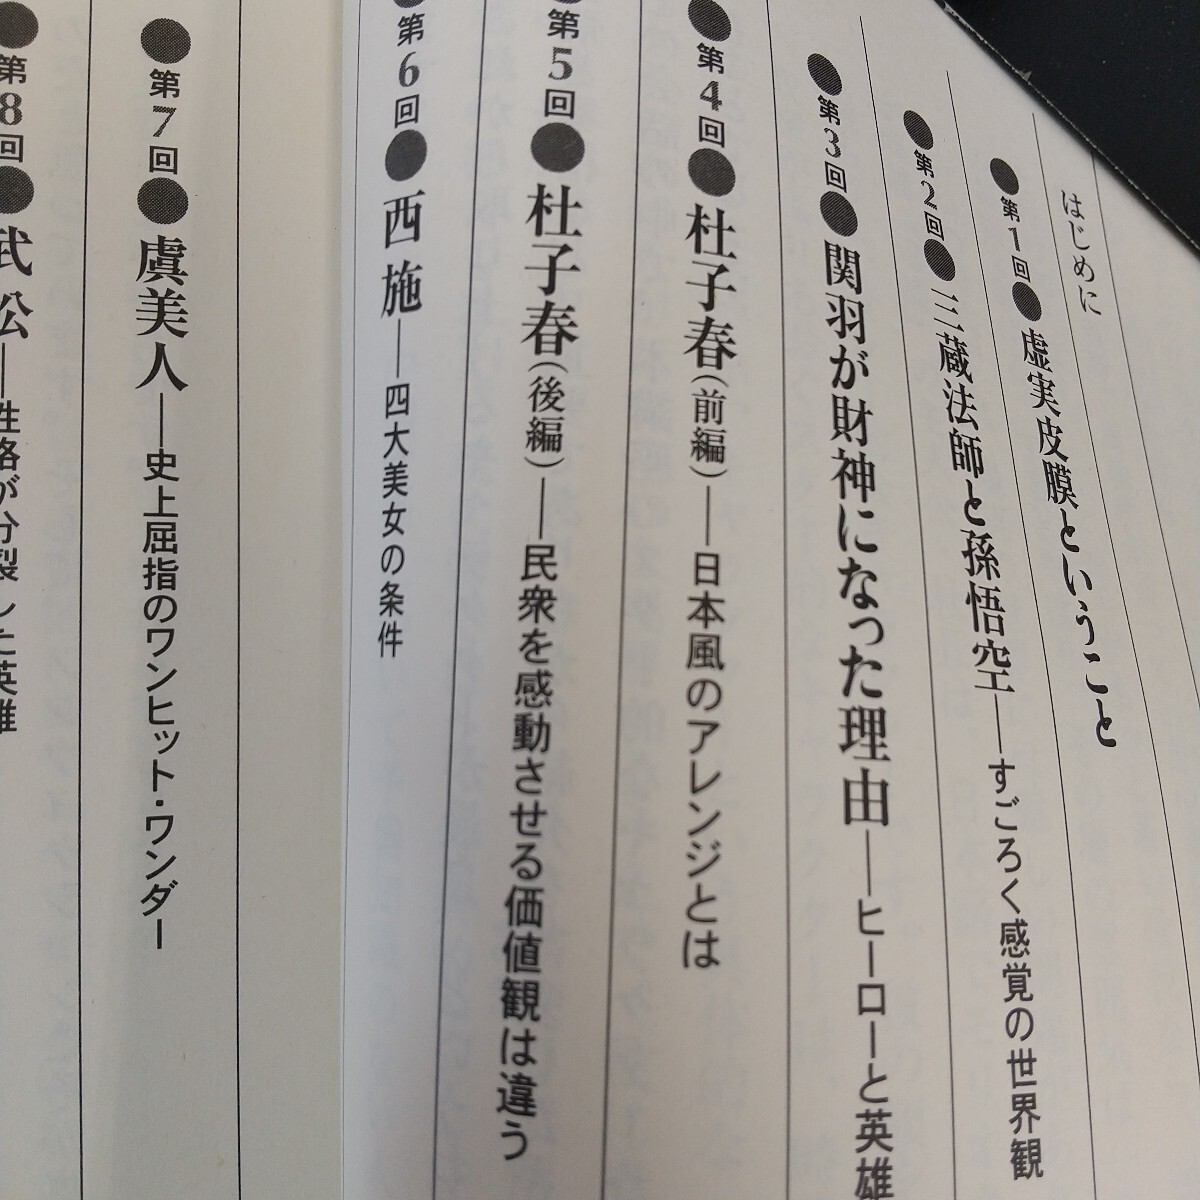 はじめに
●第1回●虚実皮膜ということ
●第2回●三蔵法師と孫悟空――すごろく感覚の世界観
●第3回●関羽が財神になった理由――ヒーローと英雄
●第4回●杜子春(前編)――日本風のアレンジとは
●第5回●杜子春(後編)――民衆を感動させる価値観は違う
●第6回●西施――四大美女の条件
●第7回●虞美人――史上屈指のワンヒット・ワンダー
●第8回●武松――性格が分裂した英雄